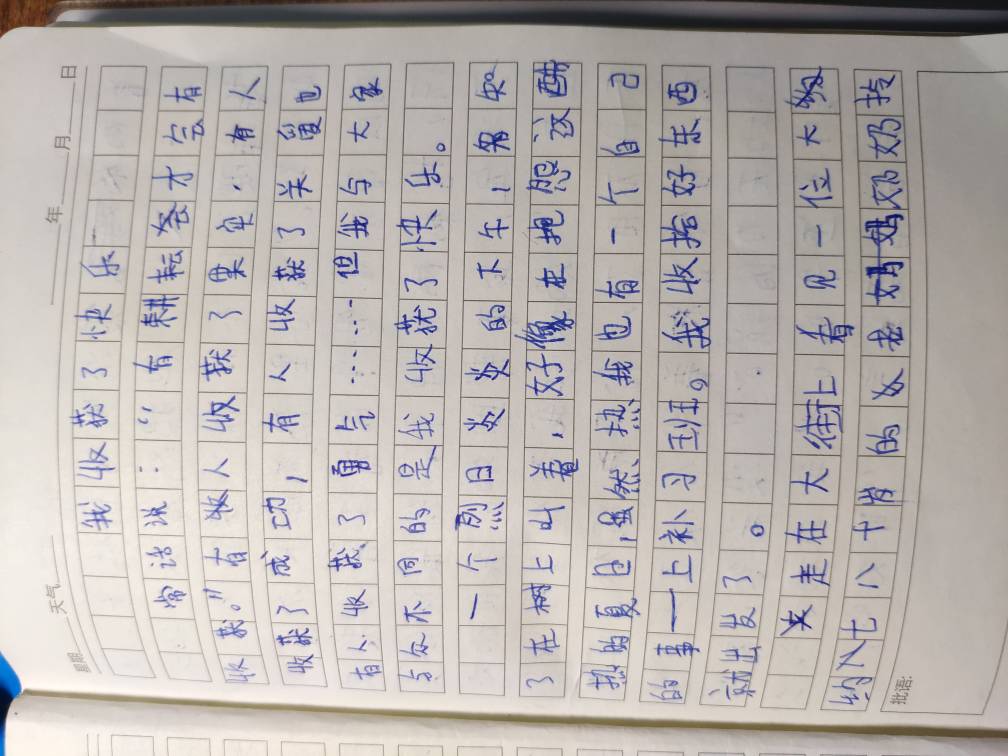 星期 天气 年 月 日
我收获了快乐
常话说：“有耕耘 才会有
收获。”有 人收获了果实，有人
收获了成功，有人收获了关爱也
有人收获了勇气……但我与大家
与众不同的是我收获了快乐。
一个烈日炎炎的下午，知
了在树上叫着，好像在抱怨这酷
热的夏日，虽然热我也有一个自己
的事—上补习班。我收拾好东西
就出发了。
走在大街上看见一位大
约 七八十岁的女老 奶奶拎
批语: